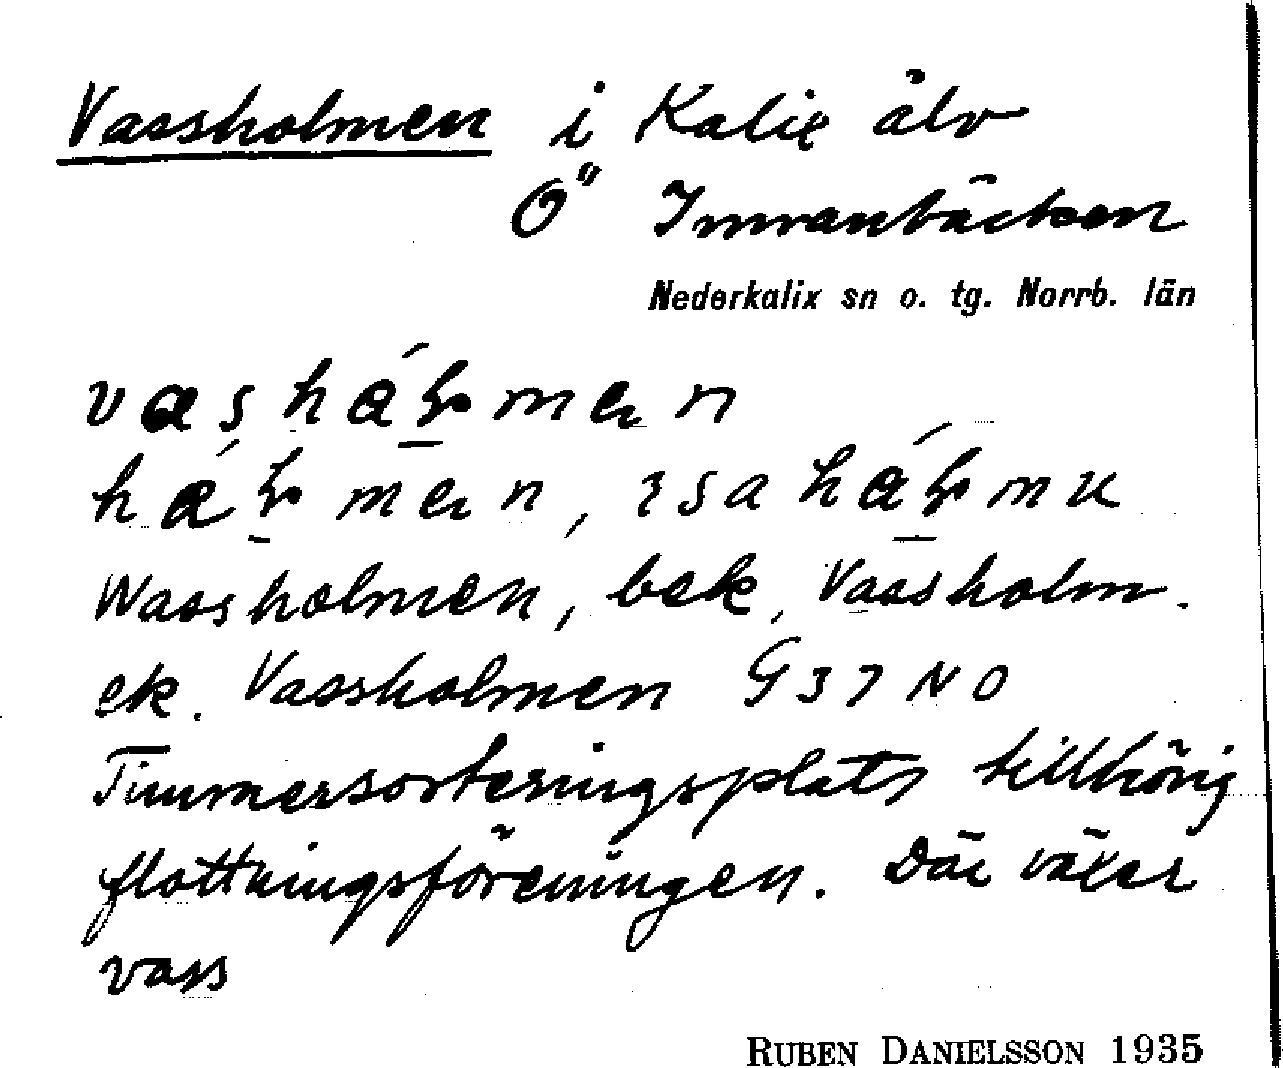 Vassholmen i Kalix älv
Ö Innanbäcken
Nederkalix sn o. tg. Norrb. län
Wassholmen, bek, Vassholm.
ek. Vassholmen G37 NO
Timmersorteringsplats tillhörig
flottningsföreningen. Där växer
vass
RUBEN DANIELSSON 1935